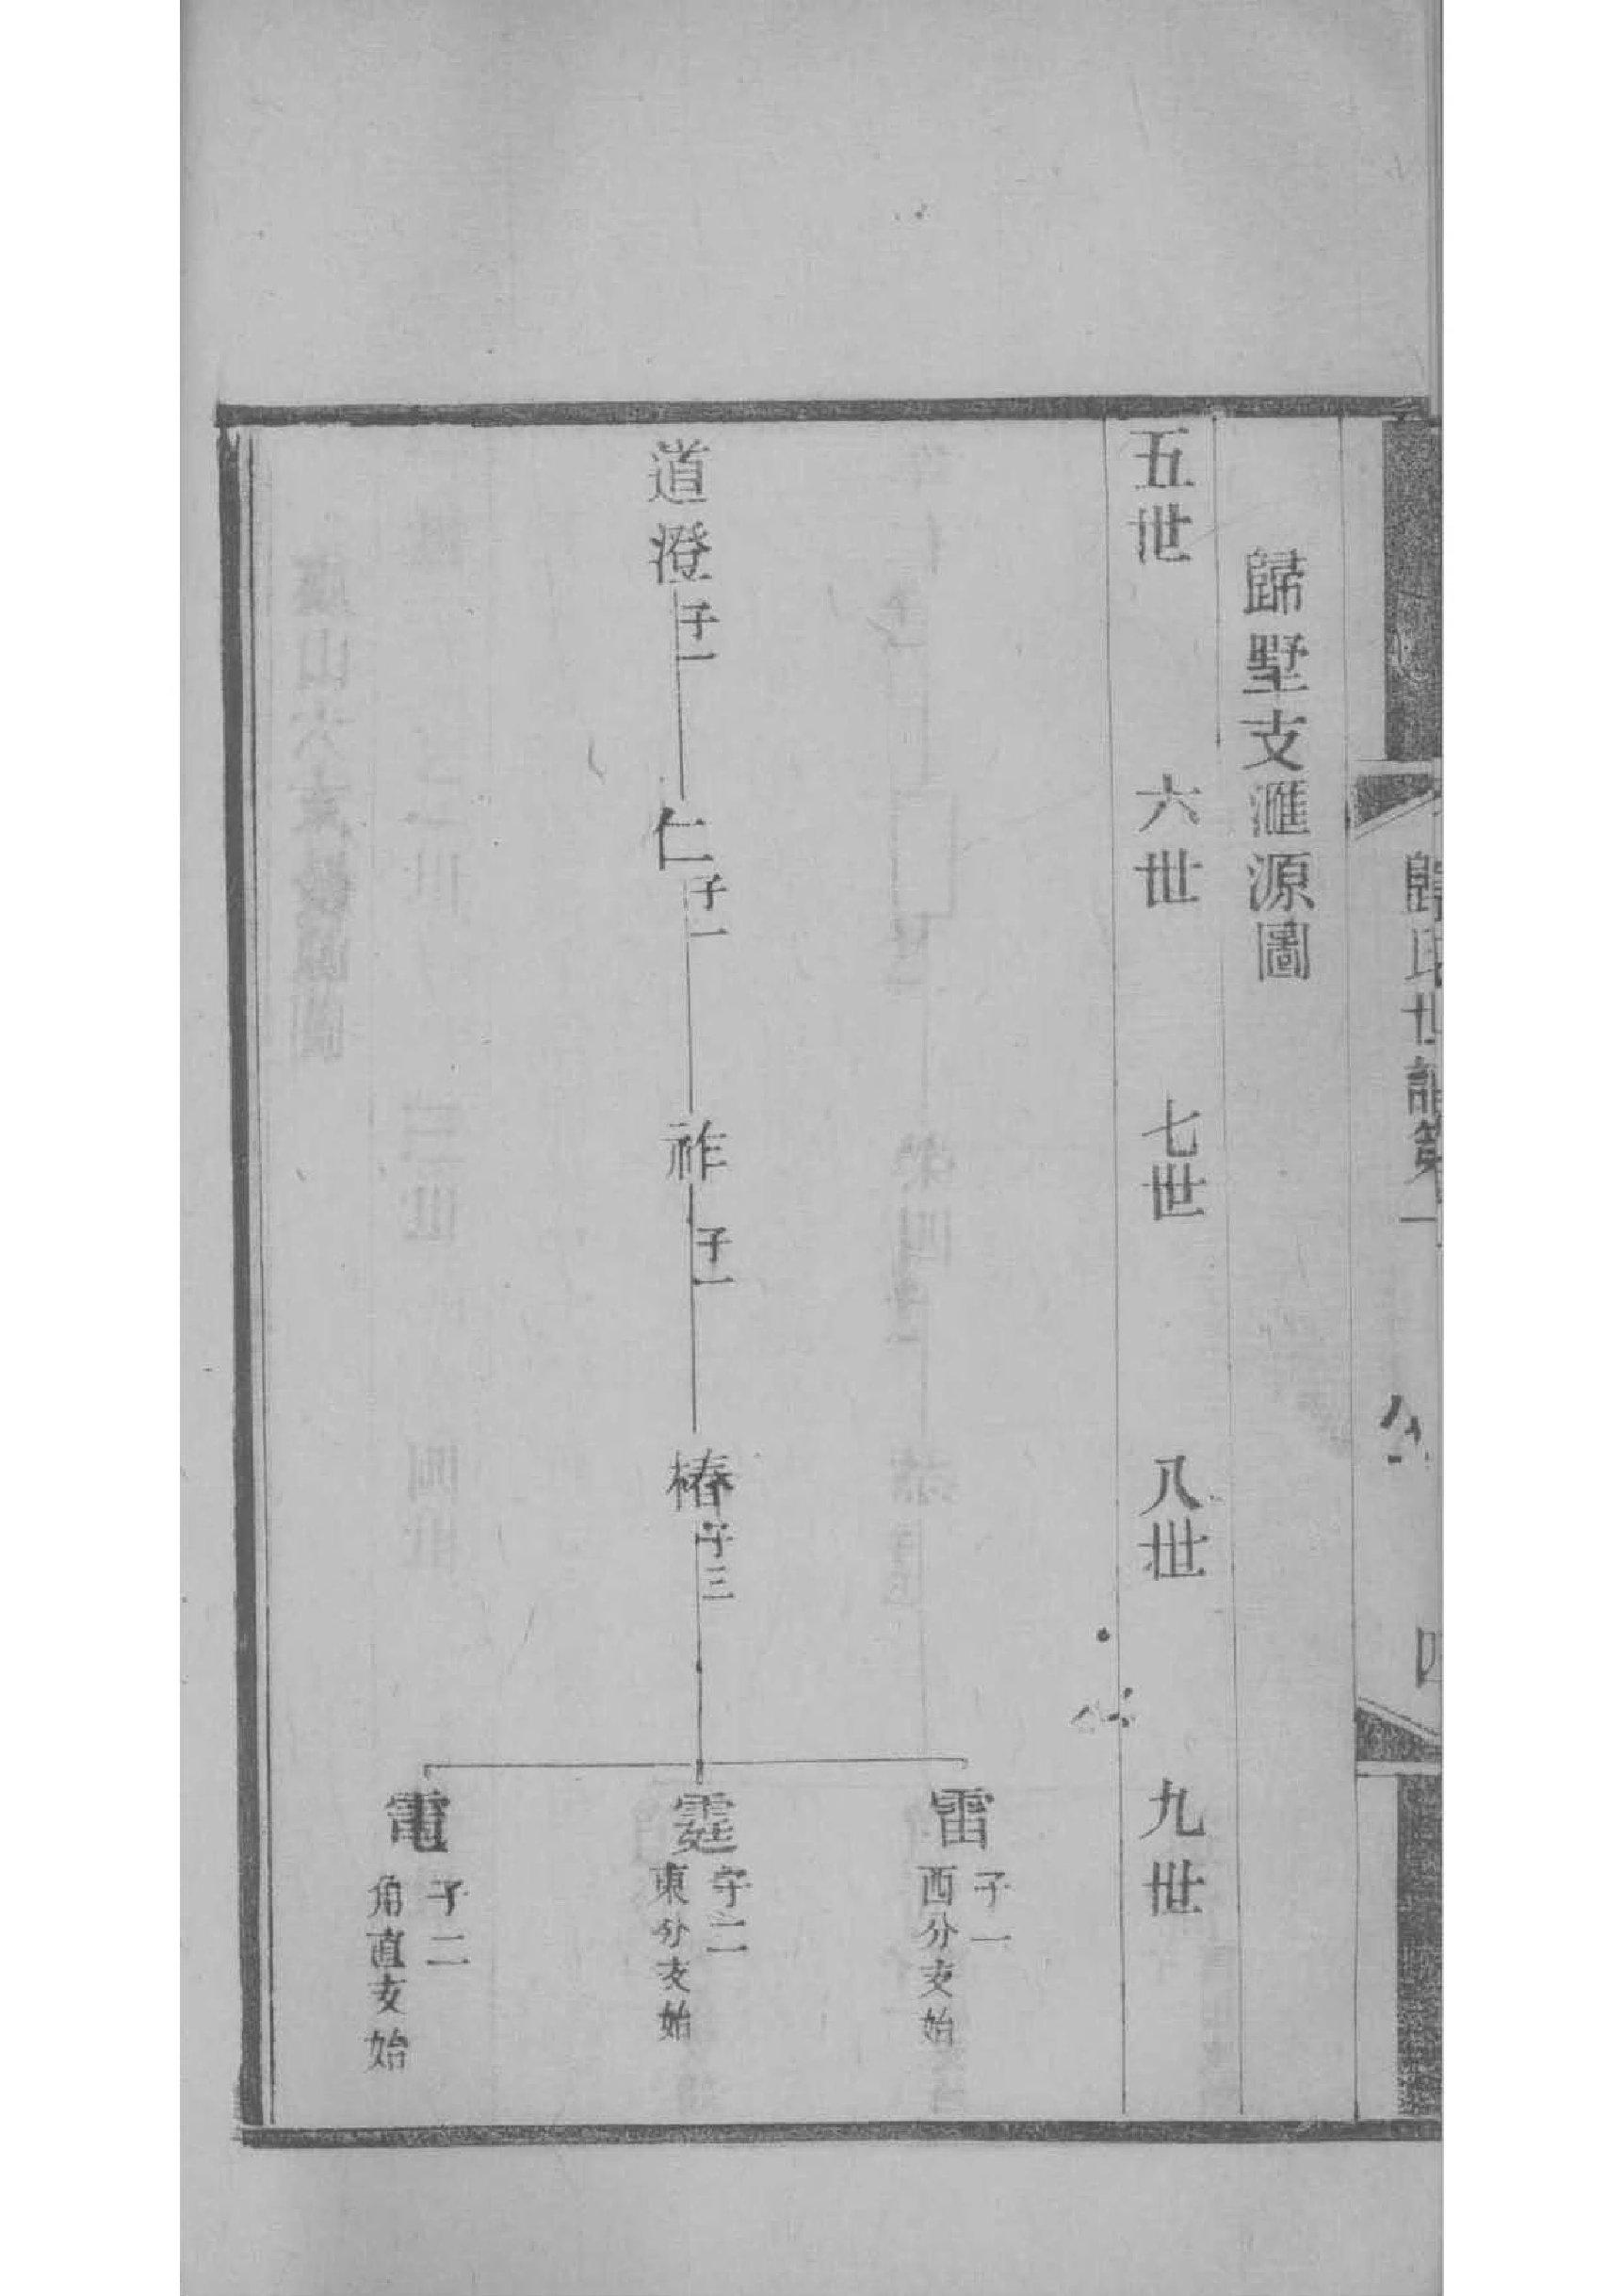 歸氏世譜第一
四
歸墅支滙源圖
五世 六世 七世 八世 九世
道澄 子一
仁 子一
祚 子一
椿 子三
雷 子一 西分支始
霆 子二 東分支始
電 子二 角直支始